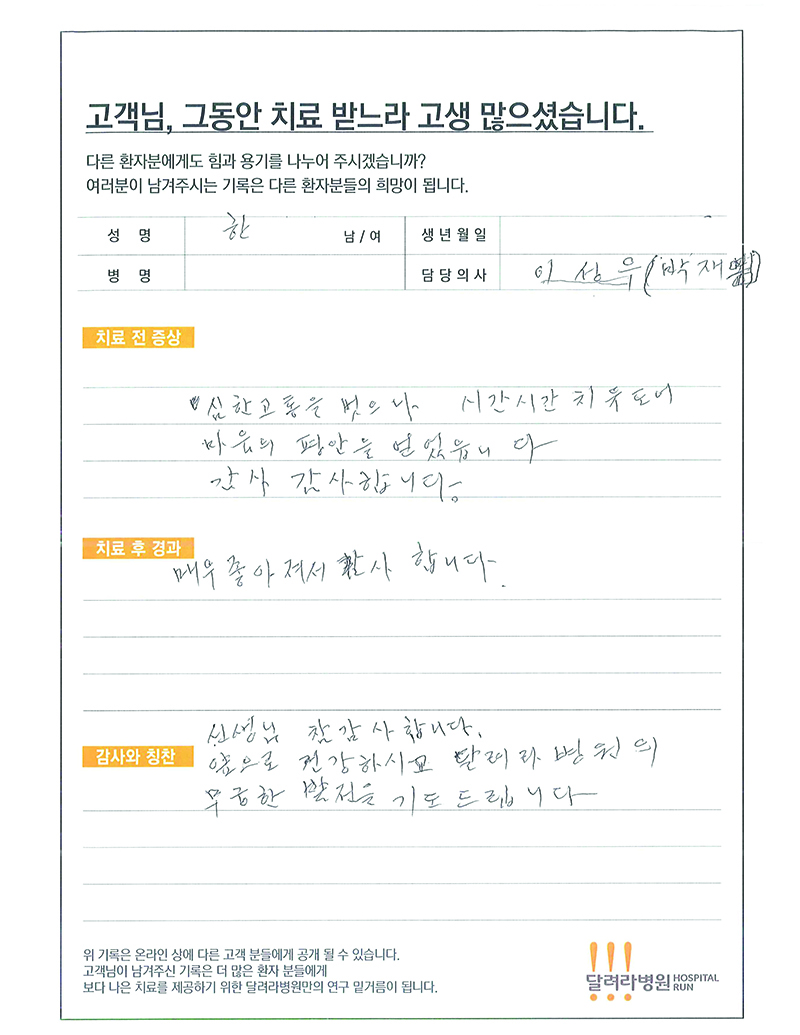 고객님, 그동안 치료 받느라 고생 많으셨습니다.
다른 환자분에게도 힘과 용기를 나누어 주시겠습니까?
여러분이 남겨주시는 기록은 다른 환자분들의 희망이 됩니다.
성 명 한 남/여 생년월일
병 명 담당의사 이성우(박재
치료 전 증상
심한고통을 벗으나 시간시간 치유도어
마음의 평안을 얻었읍니다
감사 감사합니다.
치료 후 경과
매우좋아져서 합니다.
선생님 참감사합니다.
감사와 칭찬
앞으로 건강하시고 달려라병원의
무궁한 발전을 기도드립니다
위 기록은 온라인 상에 다른 고객 분들에게 공개 될 수 있습니다.
고객님이 남겨주신 기록은 더 많은 환자 분들에게
보다 나은 치료를 제공하기 위한 달려라병원만의 연구 밑거름이 됩니다.
달려라병원 HOSPITAL RUN